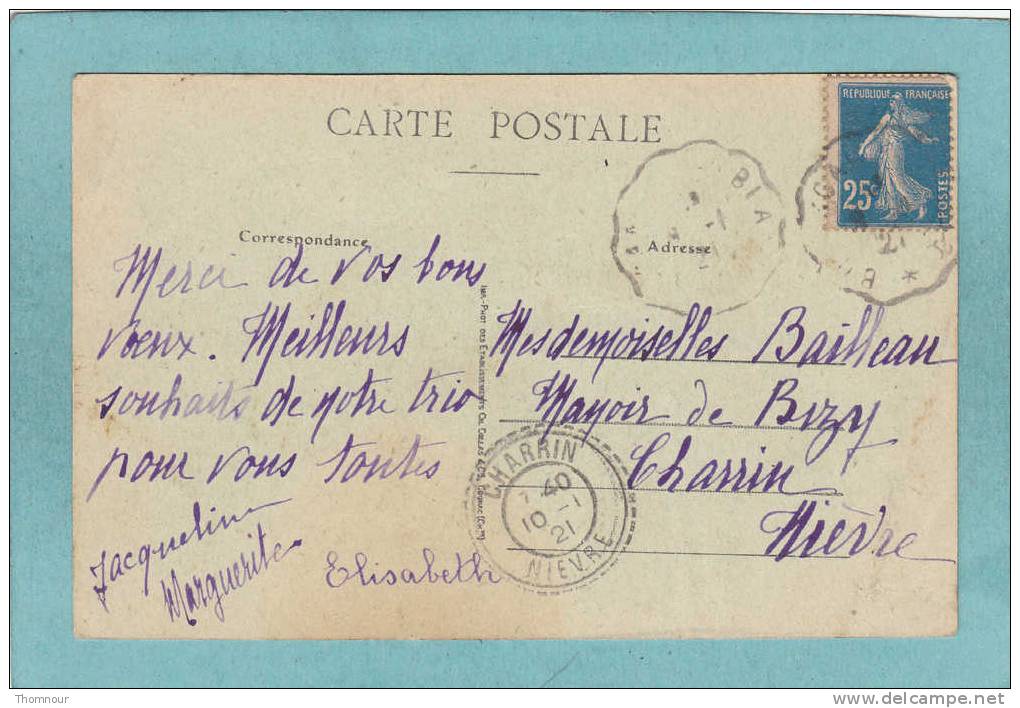 CARTE POSTALE
REPUBLIQUE FRANÇAISE
25c
POSTES
BIA
Correspondance
Adresse
Merci de vos bons
voeux. Meilleurs
souhaits de notre trio
pour vous toutes
Jacqueline
Marguerite
Elisabeth
IMP.-PHOT DES ETABLISSEMENTS CH. COLLAS & Cie, COGNAC (Chte)
Mesdemoiselles Bailleau
Manoir de Bizy
Charrin
Nièvre
CHARRIN
7 40
10 -1
21
NIEVRE
Thomnour
www.delcampe.net